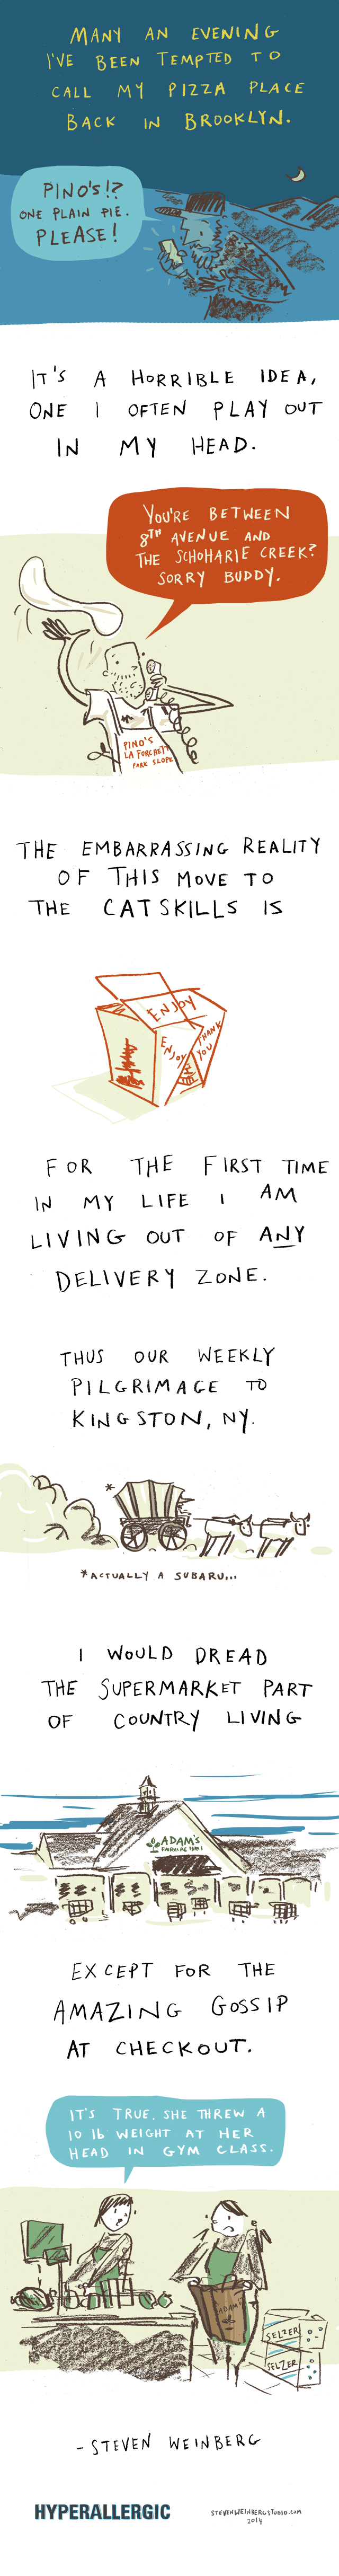 MANY AN EVENING
I'VE BEEN TEMPTED TO
CALL MY PIZZA PLACE
BACK IN BROOKLYN.
PINO'S!?
ONE PLAIN PIE.
PLEASE!
IT'S A HORRIBLE IDEA,
ONE I OFTEN PLAY OUT
IN MY HEAD.
YOU'RE BETWEEN
8TH AVENUE AND
THE SCHOHARIE CREEK?
SORRY BUDDY.
PINO'S
LA FORCHETT
PARK SLOPE
THE EMBARRASSING REALITY
OF THIS MOVE TO
THE CATSKILLS IS
ENJOY
ENJOY
THANK
YOU
FOR THE FIRST TIME
IN MY LIFE I AM
LIVING OUT OF ANY
DELIVERY ZONE.
THUS OUR WEEKLY
PILGRIMAGE TO
KINGSTON, NY.
*
*ACTUALLY A SUBARU...
I WOULD DREAD
THE SUPERMARKET PART
OF COUNTRY LIVING
ADAM'S
EXCEPT FOR THE
AMAZING GOSSIP
AT CHECKOUT.
IT'S TRUE. SHE THREW A
10 lb WEIGHT AT HER
HEAD IN GYM CLASS.
ADAM'S
SELZER
SELZER
- STEVEN WEINBERG
HYPERALLERGIC
STEVENWEINBERGSTUDIO.COM
2014